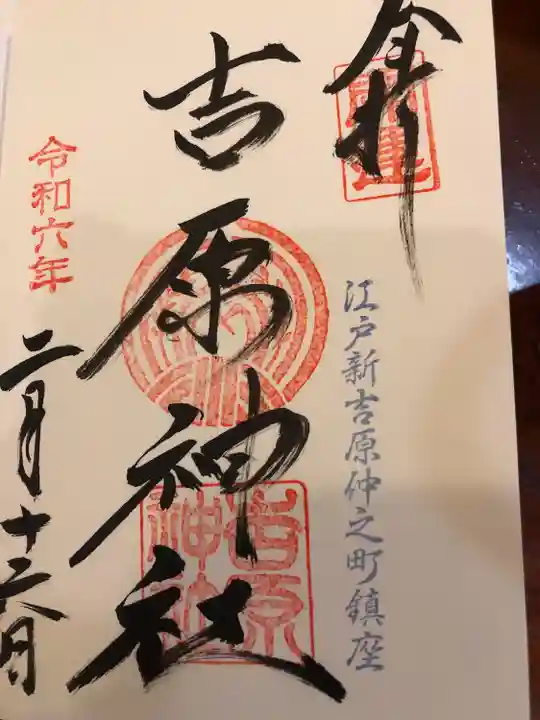 奉拝
開運
江戸新吉原仲之町鎮座
吉原神社
吉原
神社
令和六年
二月十二日